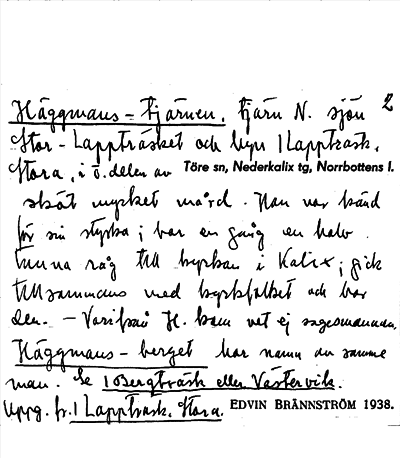 Häggmans-tjärnen, tjärn N. sjön 2
Stor-Lappträsket och byn 1 Lappträsk,
Stora, i ö. delen av Töre sn, Nederkalix tg, Norrbottens l.
sköt mycket mård. Han var känd
för sin styrka; bar en gång en halv
tunna råg till kyrkan i Kalix; gick
tillsammans med kyrkfolket och bar
den. – Varifrån H. kom vet ej sagesmannen.
Häggmans-berget har namn av samme
man. Se 1 Bergträsk eller Västervik.
Uppg. fr. 1 Lappträsk, Stora. EDVIN BRÄNNSTRÖM 1938.